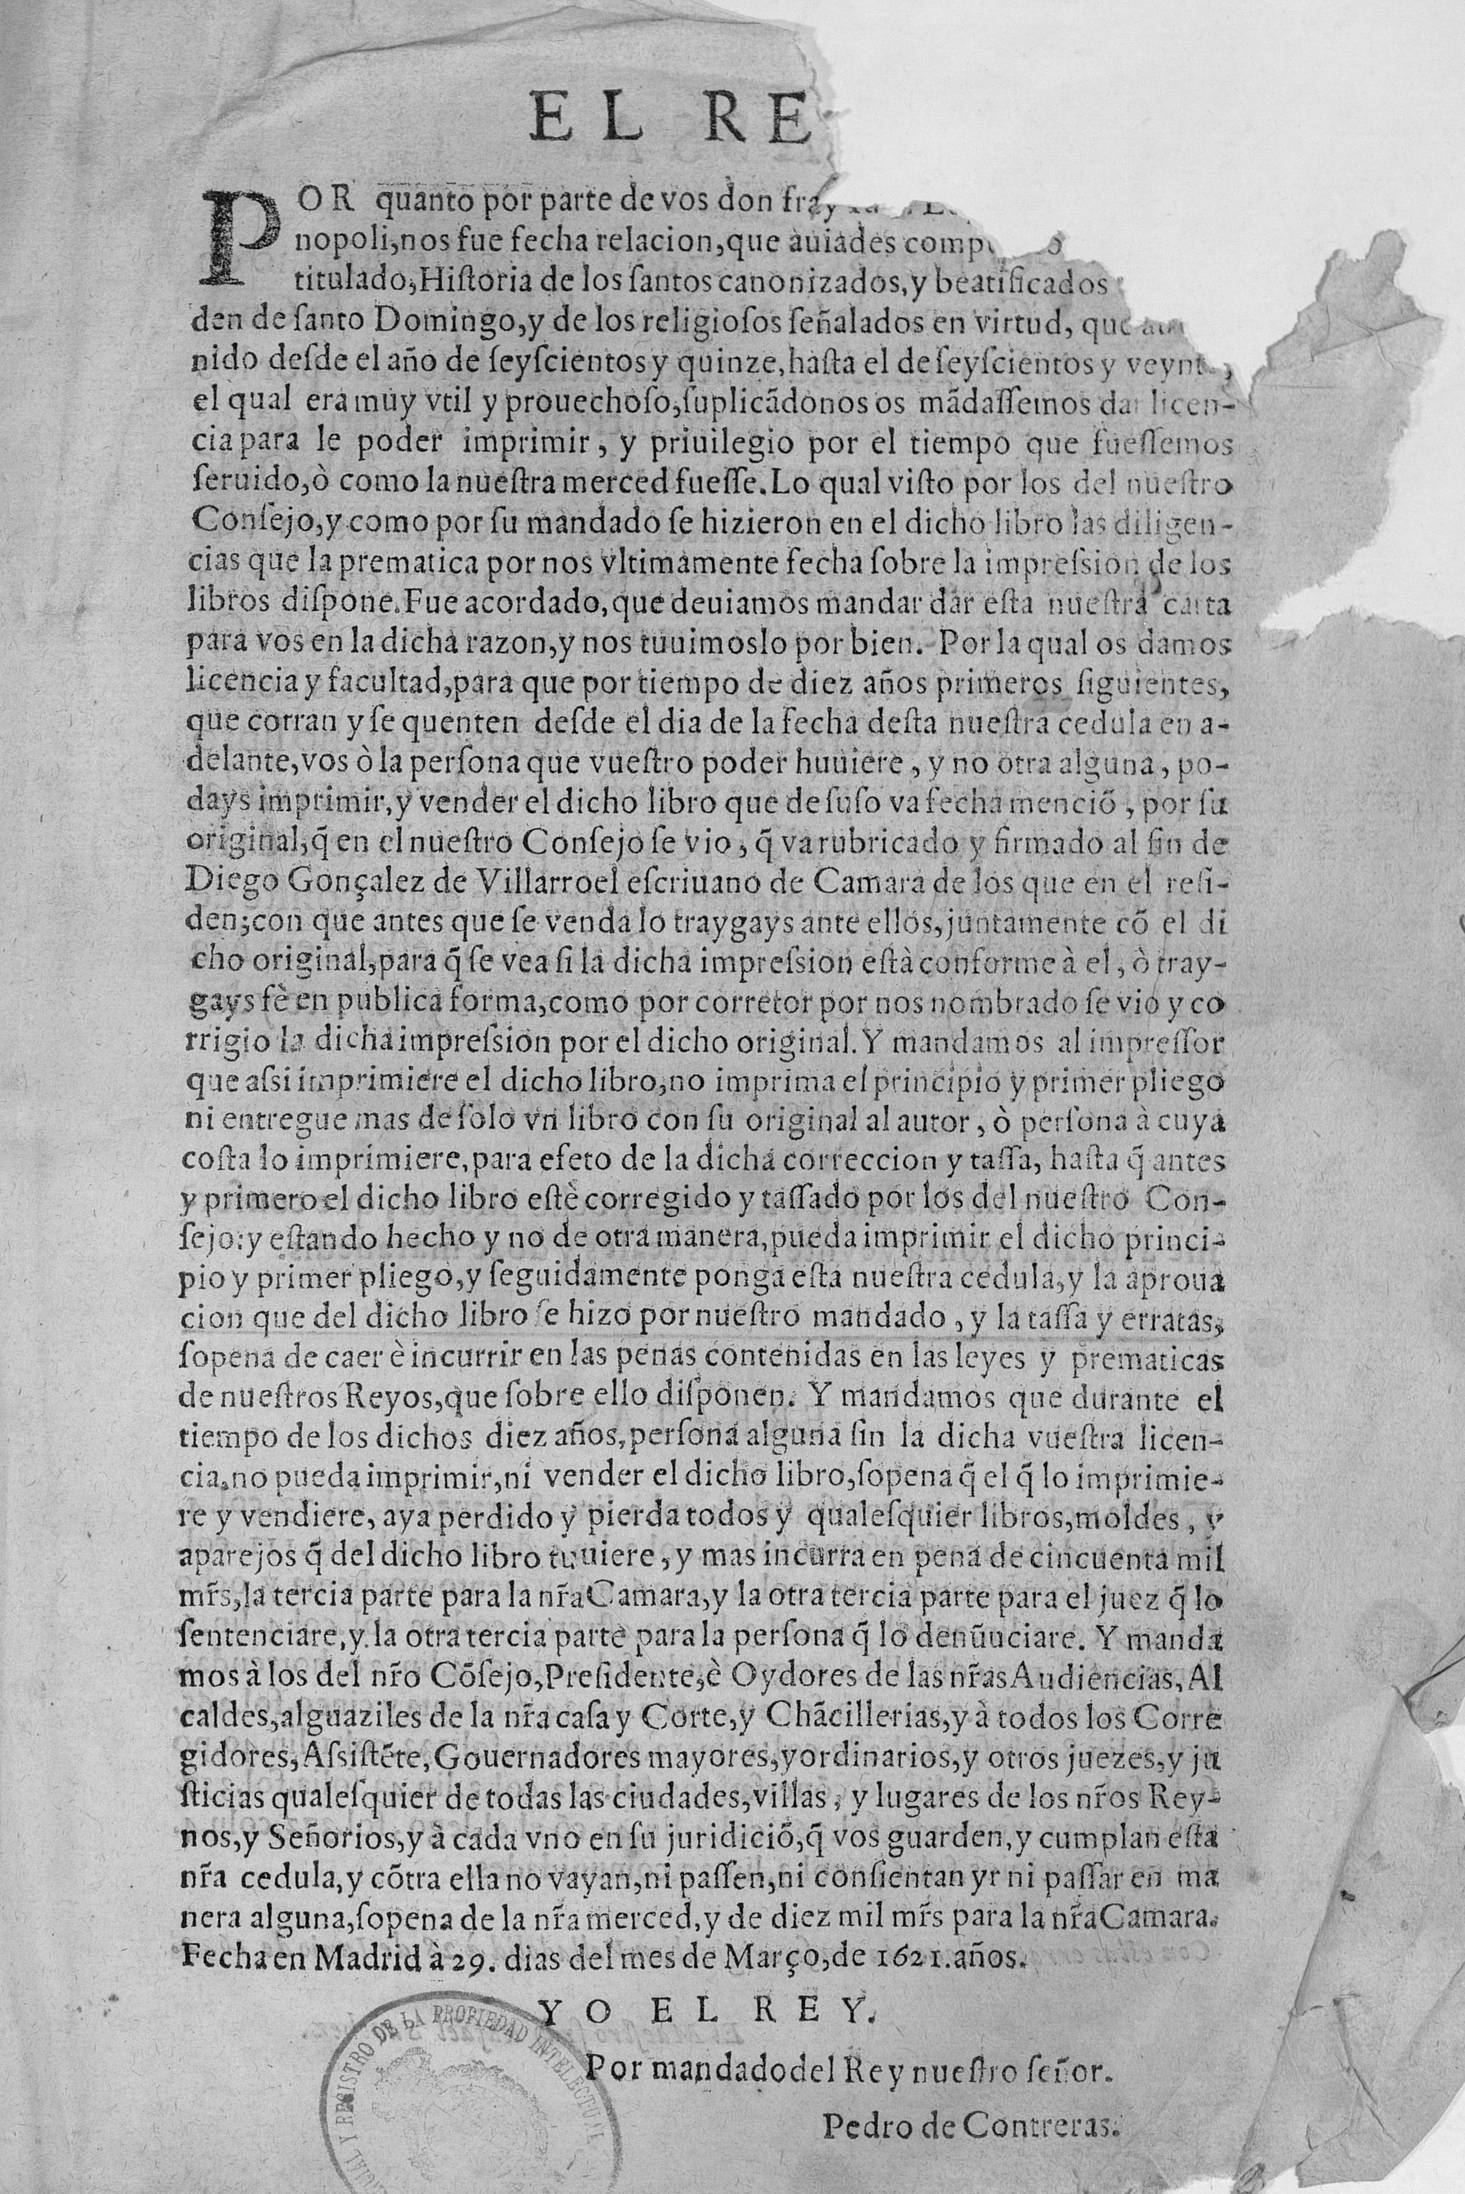 EL RE
POR quanto por parte de vos don fray
nopoli,nos fue fecha relacion,que auiades
titulado,Historia de los santos canonizados,y beatificados
den de santo Domingo,y de los religiosos señalados en virtud, que
nido desde el año de seyscientos y quinze,hasta el de seyscientos y
el qual era muy vtil y prouechoso,suplicãdonos os mãdassemos dar licen-
cia para le poder imprimir, y priuilegio por el tiempo que fuessemos
seruido,ò como la nuestra merced fuesse.Lo qual visto por los del nuestro
Consejo,y como por su mandado se hizieron en el dicho libro las diligen-
cias que la prematica por nos vltimamente fecha sobre la impression de los
libros dispone.Fue acordado,que deuiamos mandar dar esta nuestra carta
para vos en la dicha razon,y nos tuuimoslo por bien. Por la qual os damos
licencia y facultad,para que por tiempo de diez años primeros siguientes,
que corran y se quenten desde el dia de la fecha desta nuestra cedula en a-
delante,vos ò la persona que vuestro poder huuiere, y no otra alguna, po-
days imprimir,y vender el dicho libro que de suso va fecha menciõ, por su
original,q̃ en el nuestro Consejo se vio, q̃ va rubricado y firmado al fin de
Diego Gonçalez de Villarroel escriuano de Camara de los que en el resi-
den;con que antes que se venda lo traygays ante ellos,juntamente cõ el di
cho original,para q̃ se vea si la dicha impression està conforme à el, ò tray-
gays fè en publica forma,como por corretor por nos nombrado se vio y co
rrigio la dicha impression por el dicho original.Y mandamos al impressor
que assi imprimiere el dicho libro,no imprima el principio y primer pliego
ni entregue mas de solo vn libro con su original al autor, ò persona à cuya
costa lo imprimiere,para efeto de la dicha correccion y tassa, hasta q̃ antes
y primero el dicho libro estè corregido y tassado por los del nuestro Con-
sejo:y estando hecho y no de otra manera,pueda imprimir el dicho princi-
pio y primer pliego,y seguidamente ponga esta nuestra cedula,y la aproua
cion que del dicho libro se hizo por nuestro mandado, y la tassa y erratas,
sopena de caer è incurrir en las penas contenidas en las leyes y prematicas
de nuestros Reyos,que sobre ello disponen. Y mandamos que durante el
tiempo de los dichos diez años,persona alguna sin la dicha vuestra licen-
cia,no pueda imprimir,ni vender el dicho libro,sopena q̃ el q̃ lo imprimie-
re y vendiere, aya perdido y pierda todos y qualesquier libros,moldes, y
aparejos q̃ del dicho libro tuuiere, y mas incurra en pena de cincuenta mil
mr̃s,la tercia parte para la nr̃a Camara,y la otra tercia parte para el juez q̃ lo
sentenciare,y la otra tercia parte para la persona q̃ lo denũuciare. Y manda
mos à los del nr̃o Cõsejo,Presidente,è Oydores de las nr̃as Audiencias, Al
caldes,alguaziles de la nr̃a casa y Corte,y Chãcillerias,y à todos los Corre
gidores,Assistẽte,Gouernadores mayores,y ordinarios,y otros juezes,y ju
sticias qualesquier de todas las ciudades,villas, y lugares de los nr̃os Rey-
nos,y Señorios,y à cada vno en su juridiciõ,q̃ vos guarden,y cumplan esta
nr̃a cedula,y cõtra ella no vayan,ni passen,ni consientan yr ni passar en ma
nera alguna,sopena de la nr̃a merced,y de diez mil mr̃s para la nr̃a Camara.
Fecha en Madrid à 29. dias del mes de Março,de 1621.años.
YO EL REY.
Por mandado del Rey nuestro señor.
Pedro de Contreras.
Y REGISTRO DE LA PROPIEDAD INTELECTUAL